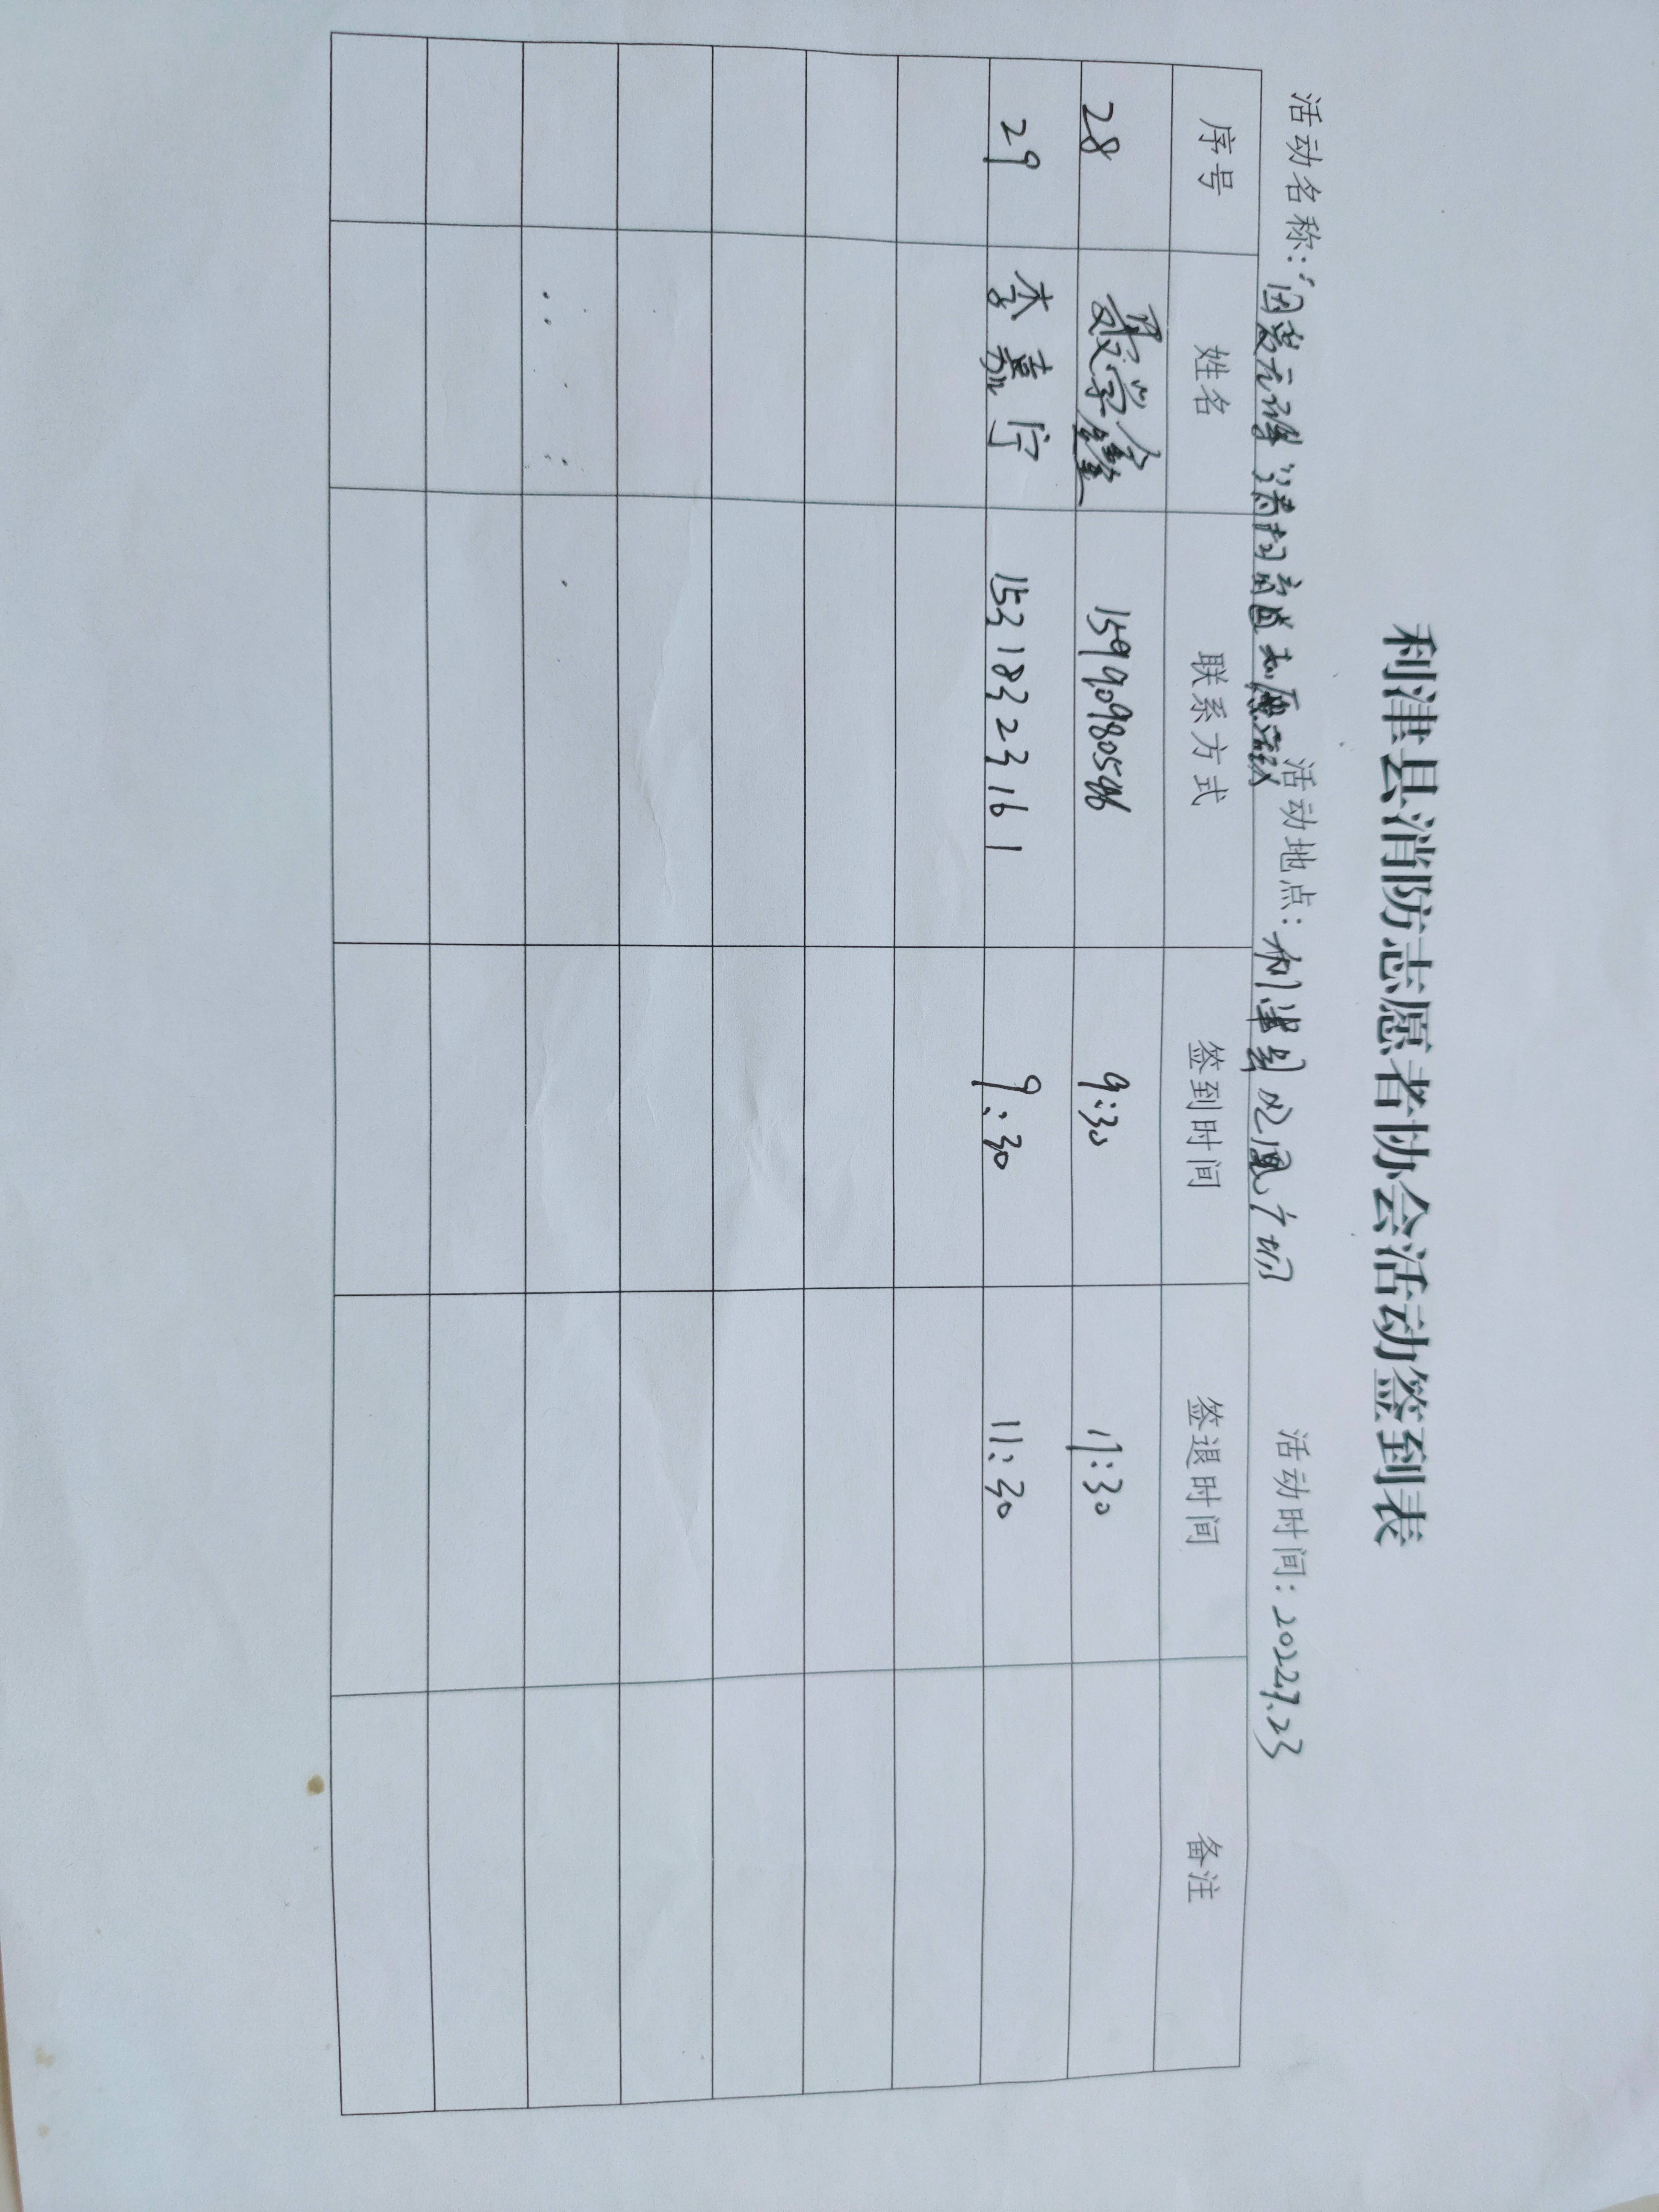 利津县消防志愿者协会活动签到表
活动名称:“因爱无障 清扫盲道志愿活动 活动地点: 利津县凤凰广场 活动时间: 2022.7.23
序号 姓名 联系方式 签到时间 签退时间 备注
28 聂学鑫 15990980546 9:30 11:30
29 李嘉宁 15318323161 9:30 11:30